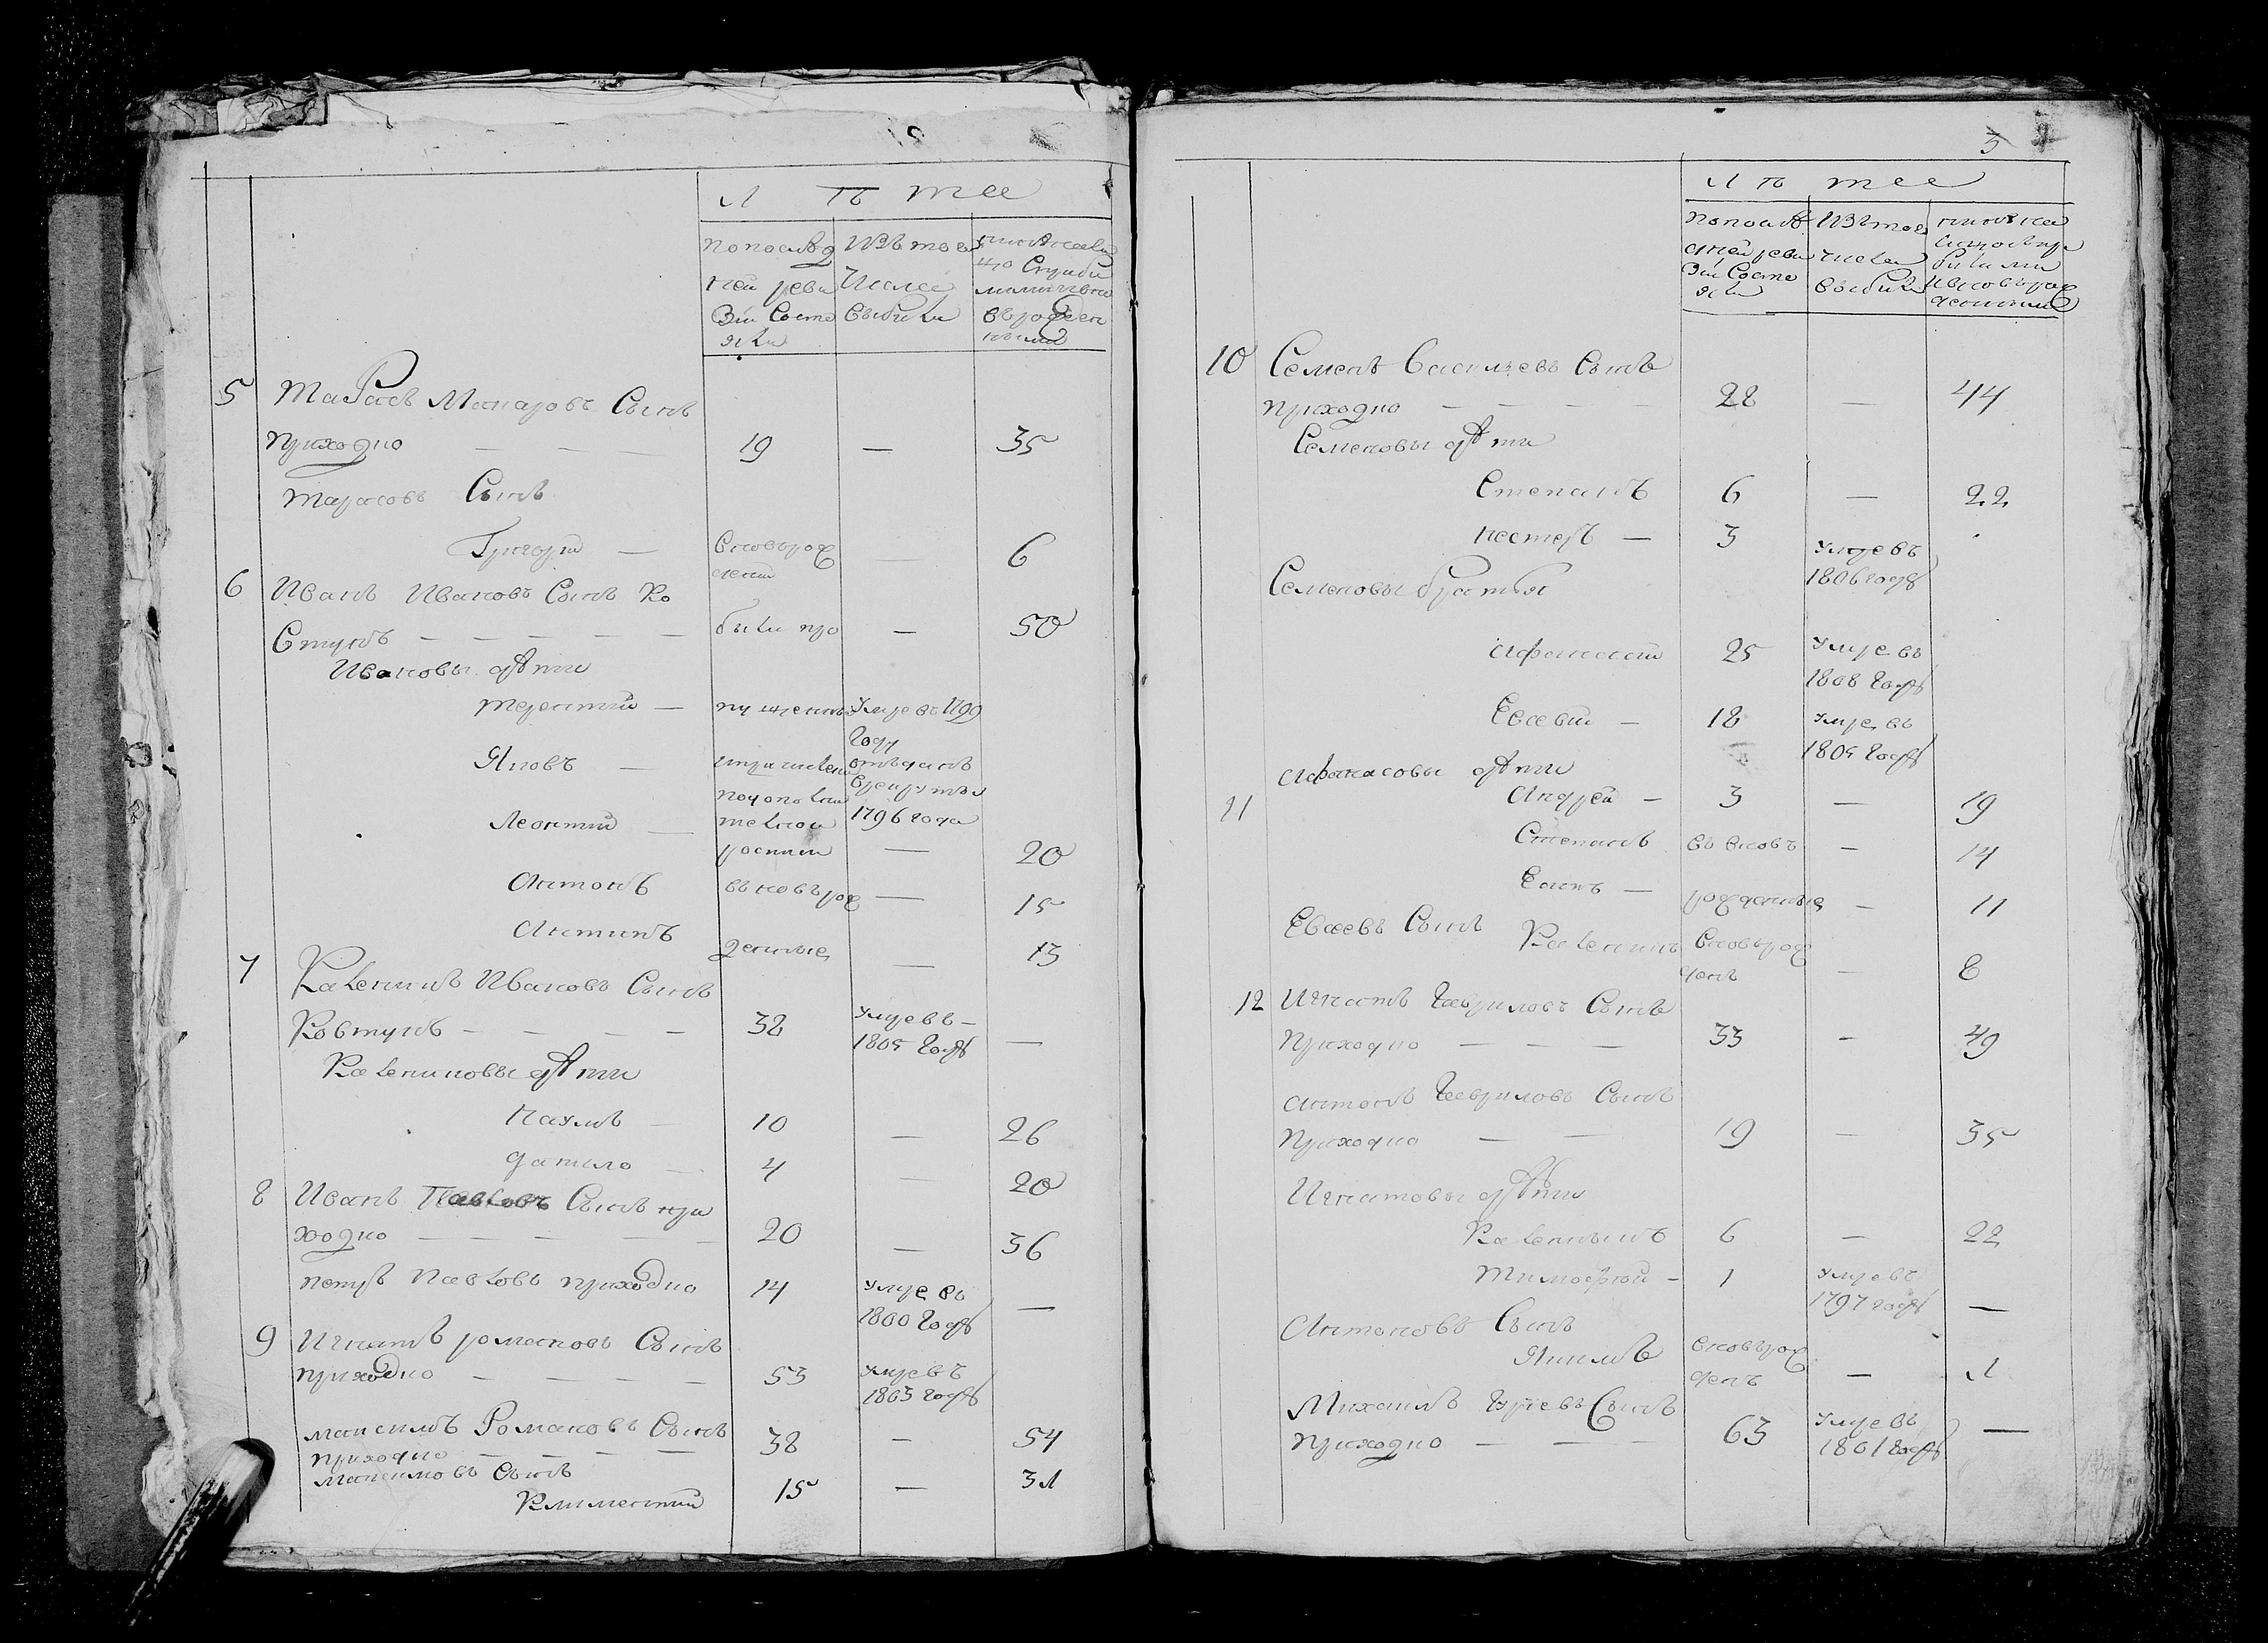 Л ѣ тѣ
По послѣд
ней реви
зіи состо
яли
Изъ того
числа
выбыли
ново рожден
ными
5 Тарасъ Макаровъ Сынъ
приходко — — — 19 — 35
Тарасовъ Сынъ
Григорій — вновьрож
денъ — 6
6 Иванъ Ивановъ Сынъ Ко
втунъ — — — — — были про — 50
Ивановы дѣти
Терентий — пущенны Умре въ 1799
году
Яковъ — отъданъ
врекруты
1796 года
Леонтий —
росписи — 20
Антонъ вновьрож — 15
Антипъ
денные — 13
7 Каленикъ Ивановъ Сынъ
Ковтунъ — — — — 32 Умре въ —
1805 годѣ —
Калениковы дѣти
Наумъ — 10 — 26
данило — 4 — 20
8 Иванъ Павловъ Сынъ при
ходко — — — — — 20 — 36
петръ Павловъ приходко 14 Умре въ
1800 годѣ —
9 Игнатъ романовъ Сынъ
приходко — — — — 53 Умре въ
1803 годѣ
максимъ Романовъ Сынъ
приходко — — — — 38 — 54
максимовъ Сынъ
Климентий 15 — 31
3
Л ѣ тѣ
По послѣ
дней реви
зіи состо
яли
Изъ того
числа
выбыли
10 Семенъ Васильевъ Сынъ
приходко — — — — 28 — 44
Семеновы дѣти
Степанъ 6 — 22
нестеръ — 3 Умре въ
1806 годѣ
Семеновы братья
Афанасий 25 Умре въ
1808 годѣ
Евсевий — 18 Умре въ
1805 годѣ
Афанасовы дѣти
11 Андрей — 3 — 19
Степанъ въ вновъ — 14
рожденные — 11
Евсеевъ Сынъ Каленикъ вновьрож
денъ — 8
12 Игнатъ Гавриловъ Сынъ
Приходко — — — 33 — 49
Антонъ Гавриловъ Сынъ
Приходко — — 19 — 35
Игнатовы дѣти
Каленикъ 6 — 22
Тимофей — 1 Умре въ
1797 годѣ —
Антоновъ Сынъ
Якимъ вновьрож
денъ — 1
Михаилъ Сынъ
приходко — — 63 Умре въ
1801 годѣ —